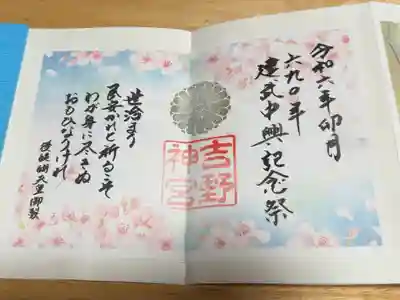 令和六年卯月
六九〇年
建武中興記念祭
吉野
神宮
世治まり
民安かれと祈るこそ
わが身につきぬ
おもひなりけれ
後醍醐天皇御製